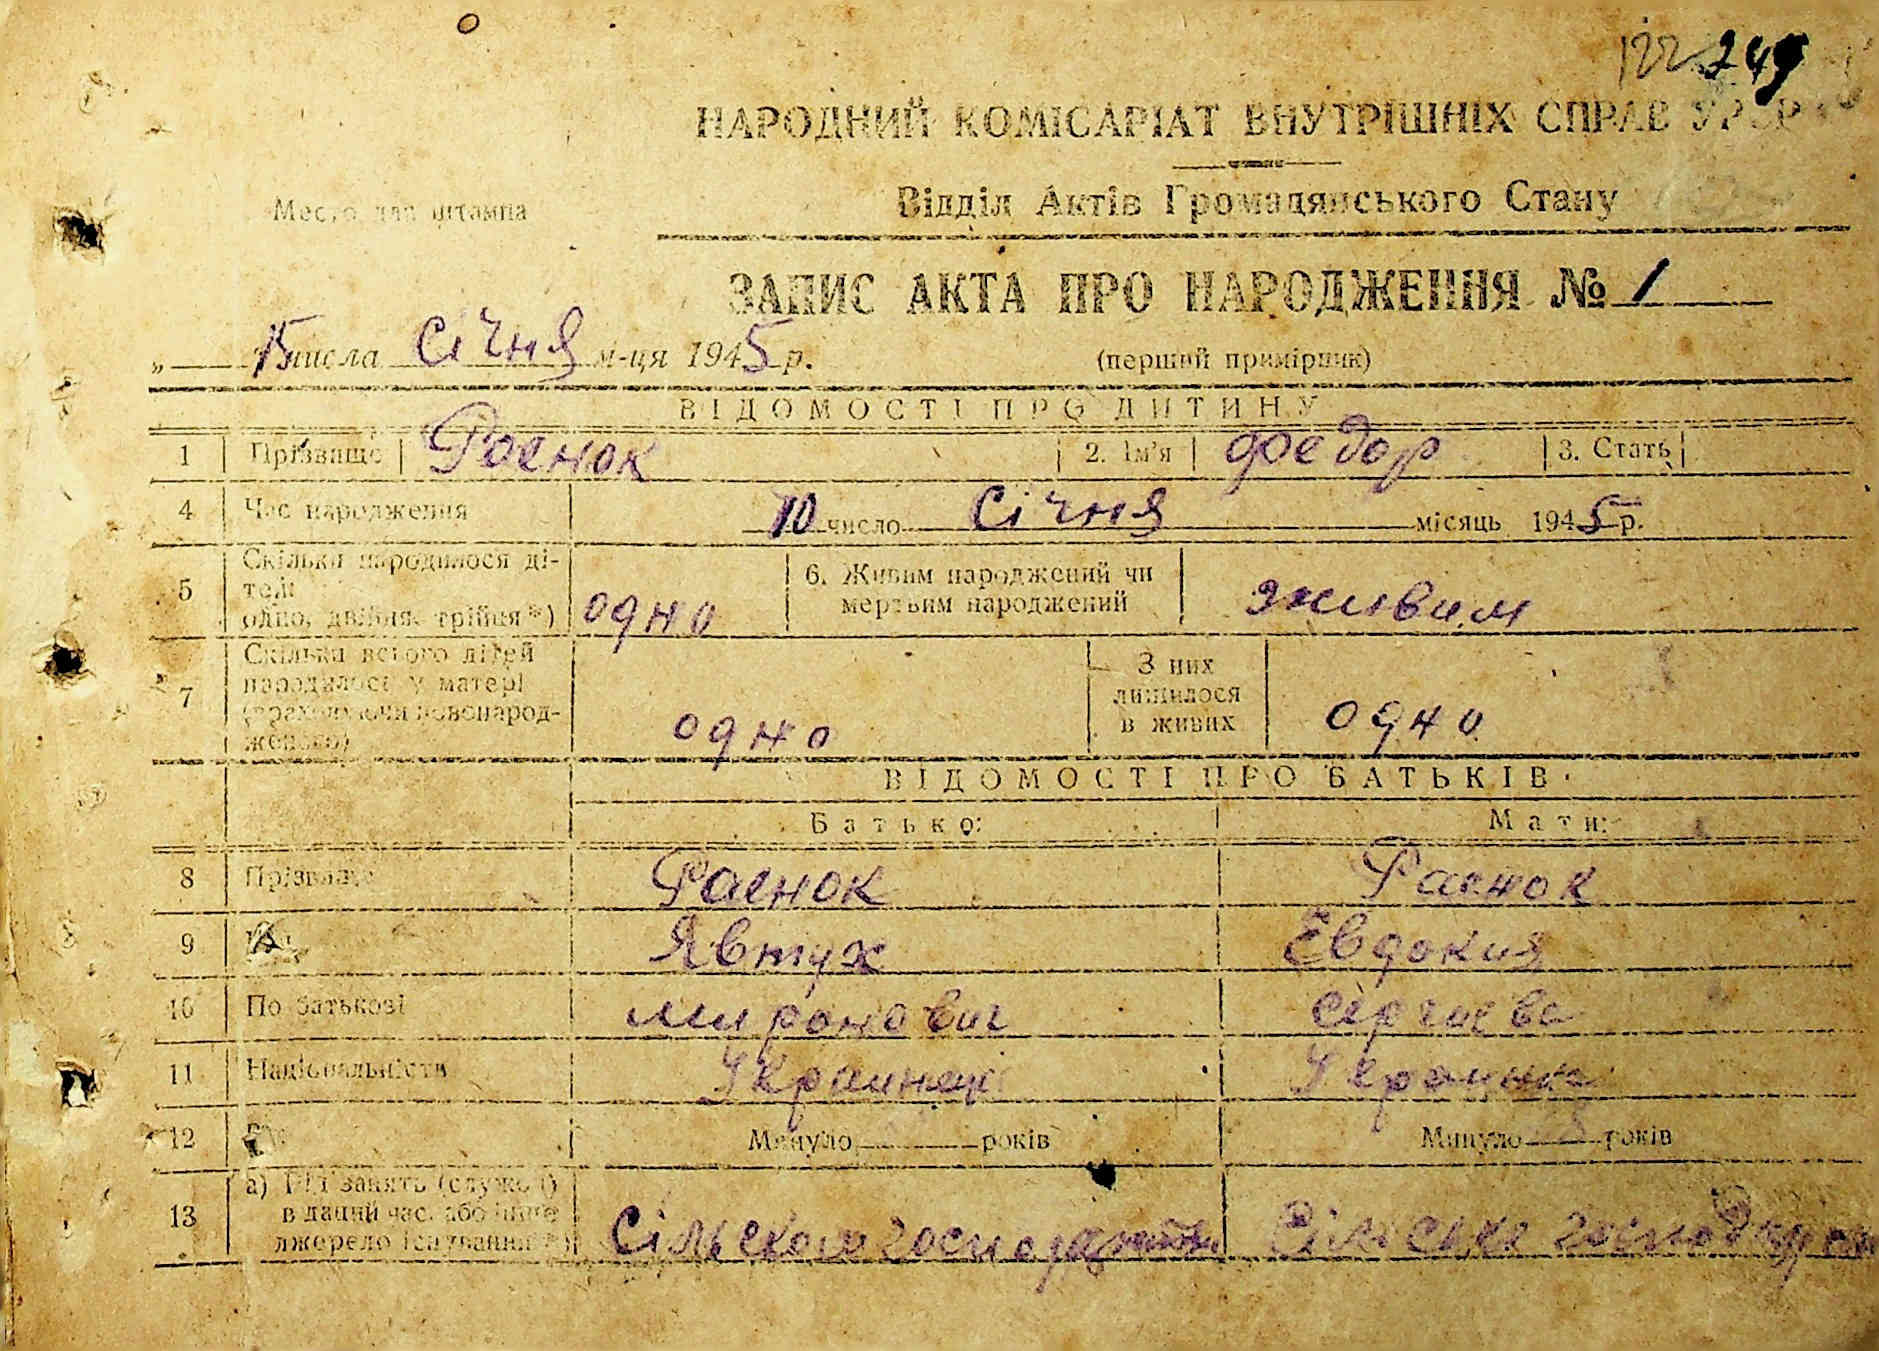 122 249
НАРОДНИЙ КОМІСАРІАТ ВНУТРІШНІХ СПРАВ УРСР
Место для штампа
Відділ Актів Громадянського Стану
ЗАПИС АКТА ПРО НАРОДЖЕННЯ № 1
„ 15 числа Січня м-ця 1945 р.
(перший примірник)
ВІДОМОСТІ ПРО ДИТИНУ
1 Прізвище Роенок 2. Ім'я Федор 3. Стать
4 Час народження 10 число Січня місяць 1945 р.
5 Скільки народилося ді-
тей:
одно, двійня, трійня*) одно 6. Живим народжений чи
мертвим народжений живим
7 Скільки всього дітей
народилося у матері
(враховуючи новонарод-
женого) одно З них
лишилося
в живих одно
ВІДОМОСТІ ПРО БАТЬКІВ
Батько: Мати:
8 Прізвище Раенок Раенок
9 Явтух Евдокия
10 По батькові Миронович Сергиева
11 Національність Украинец Украинка
12 Минуло років Минуло років
13 а) Рід занять (служби)
в даний час, або інше
джерело існування*) Сільское